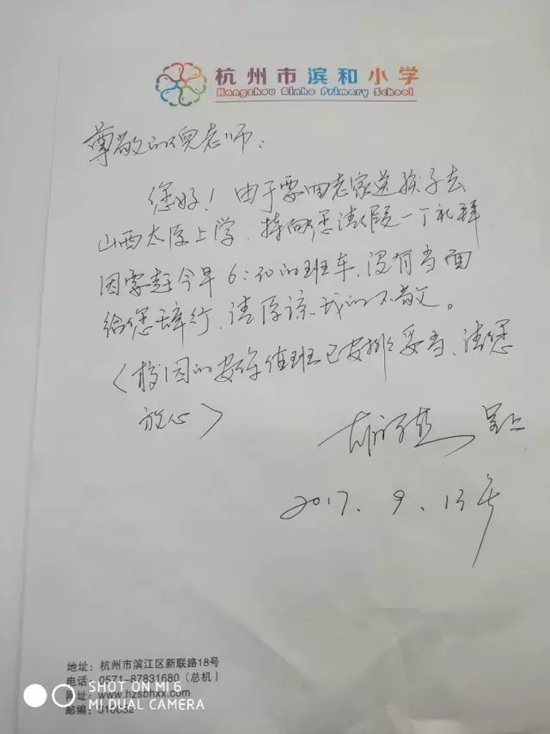 杭州市滨和小学
Hangzhou Binhe Primary School
尊敬的倪老师:
您好!由于要回老家送孩子去
山西太原上学,特向您请假一个礼拜
因需赶今早6:20的班车,没有当面
给您辞行,请原谅我的不敬。
(校园的安全值班已安排妥当,请您
放心)
呈上
2017.9.13号
地址:杭州市滨江区新联路18号
电话:0571-87831680(总机)
网址:www.hzsbhxx.com
邮编:310052
SHOT ON MI 6
MI DUAL CAMERA